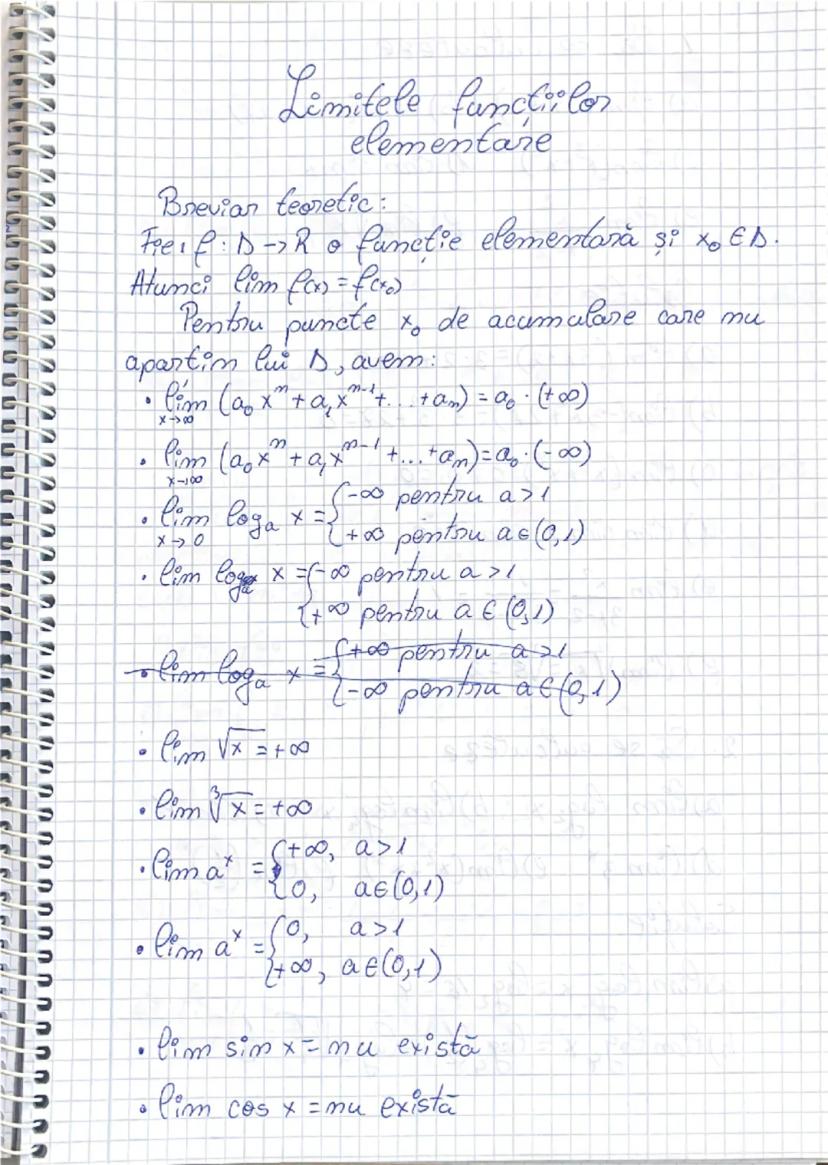 Limitele funcțiilor
elementare
Breviar teoretic:
Fie: f: D→R o funcție elementară și x₀ ∈ D.
Atunci lim f(x) = f(x₀)
Pentru puncte x₀ de acumulare care nu
apartin lui D, avem:
• lim (a₀xⁿ + a₁xⁿ⁻¹ + ... + aₙ) = a₀ · (+∞)
x→∞
• lim (a₀xⁿ + a₁xⁿ⁻¹ + ... + aₙ) = a₀ · (-∞)
x→∞
• lim logₐ x = { -∞ pentru a > 1
x→0 { +∞ pentru a ∈ (0,1)
• lim logₐ x = { -∞ pentru a > 1
{ +∞ pentru a ∈ (0,1)
• lim logₐ x = { +∞ pentru a > 1
{ -∞ pentru a ∈ (0,1)
• lim √x = +∞
• lim ³√x = +∞
• lim aˣ = { +∞, a > 1
{ 0, a ∈ (0,1)
• lim aˣ = { 0, a > 1
{ +∞, a ∈ (0,1)
• lim sin x = nu există
• lim cos x = nu există